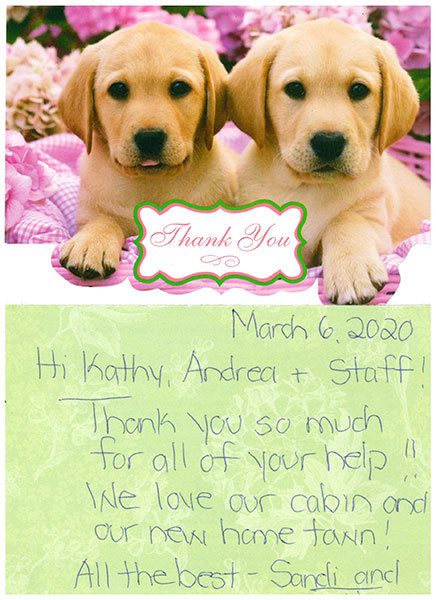 Thank You
March 6, 2020
Hi Kathy, Andrea + Staff!
Thank you so much
for all of your help!!
We love our cabin and
our new home town!
All the best - Sandi and